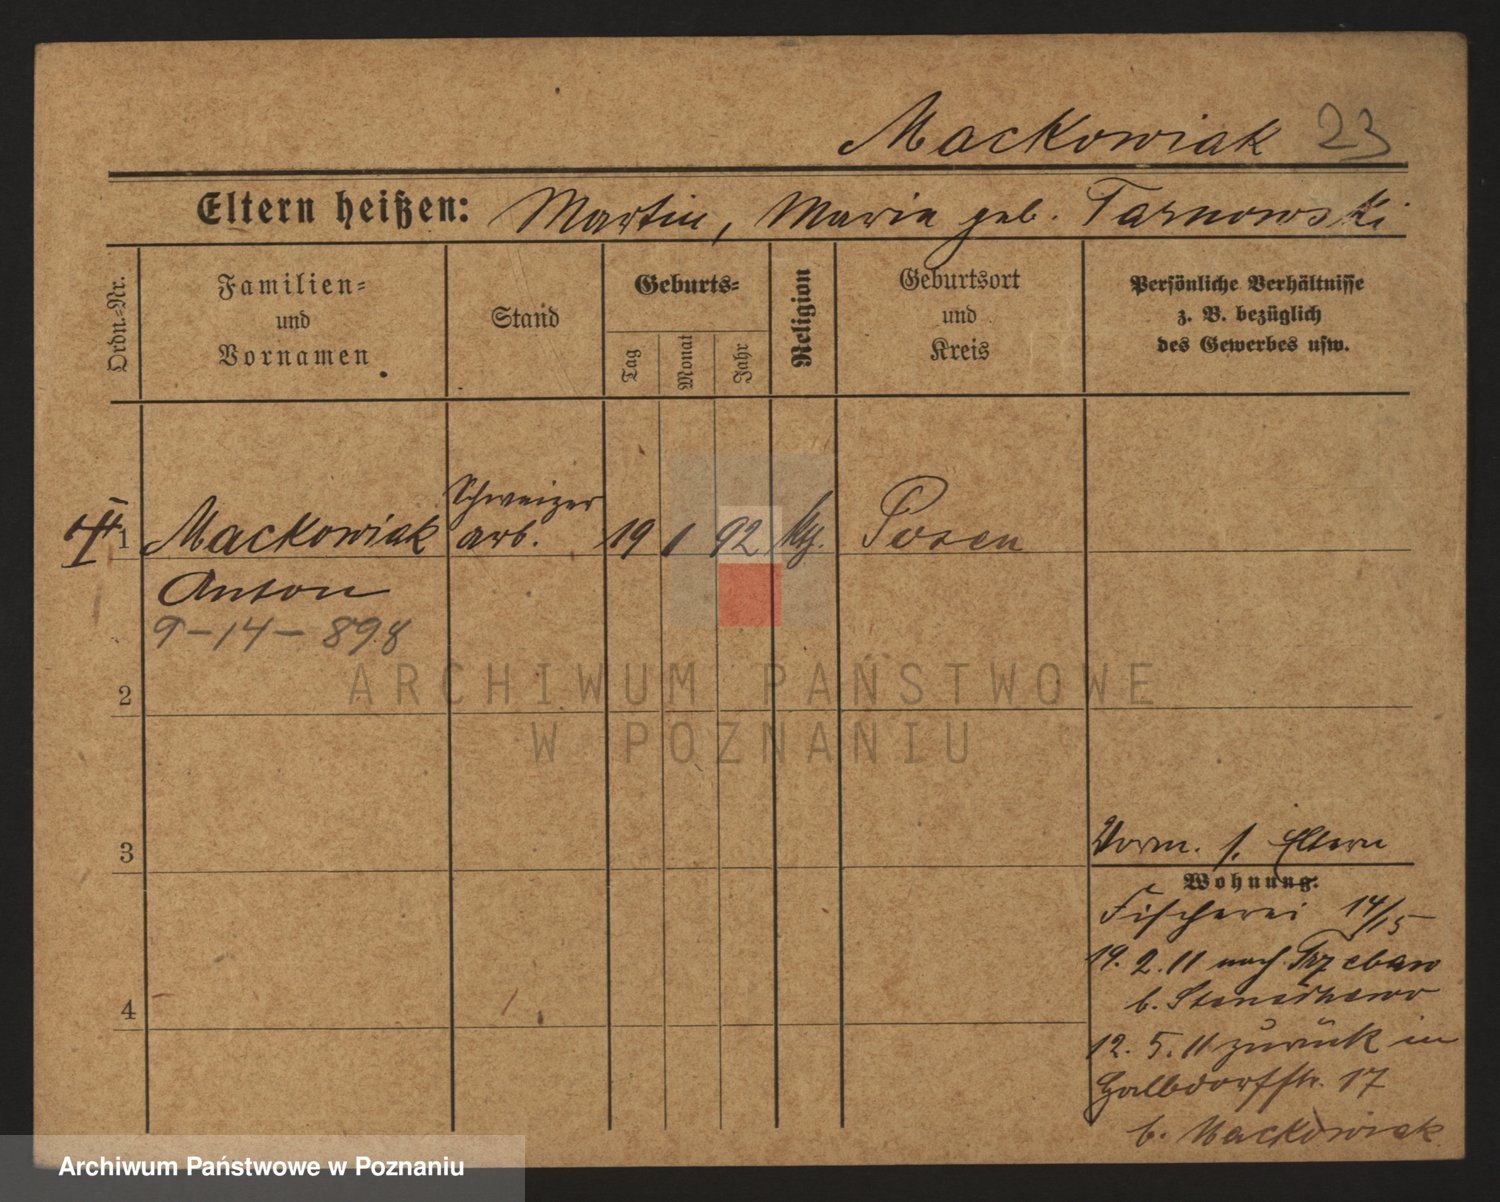 Mackowiak 23
Eltern heißen: Martin, Maria geb. Tarnowski
Ordn.-Nr.
Familien-
und
Vornamen
Stand
Geburts-
Tag
Monat
Jahr
Religion
Geburtsort
und
Kreis
Persönliche Verhältnisse
z. B. bezüglich
des Gewerbes usw.
Schweizer
1 Mackowiak arb. 19 1 92 Posen
Anton
9-14-898
2
ARCHIWUM PAŃSTWOWE
W POZNANIU
3
4
Vorm. s. Eltern
Wohnung.
Fischerei 14/15
19. 2. 11 nach Trzebaw
b. Stenschewo
12. 5. 11 zurück in
Halbdorfstr. 17
b. Mackowiak
Archiwum Państwowe w Poznaniu